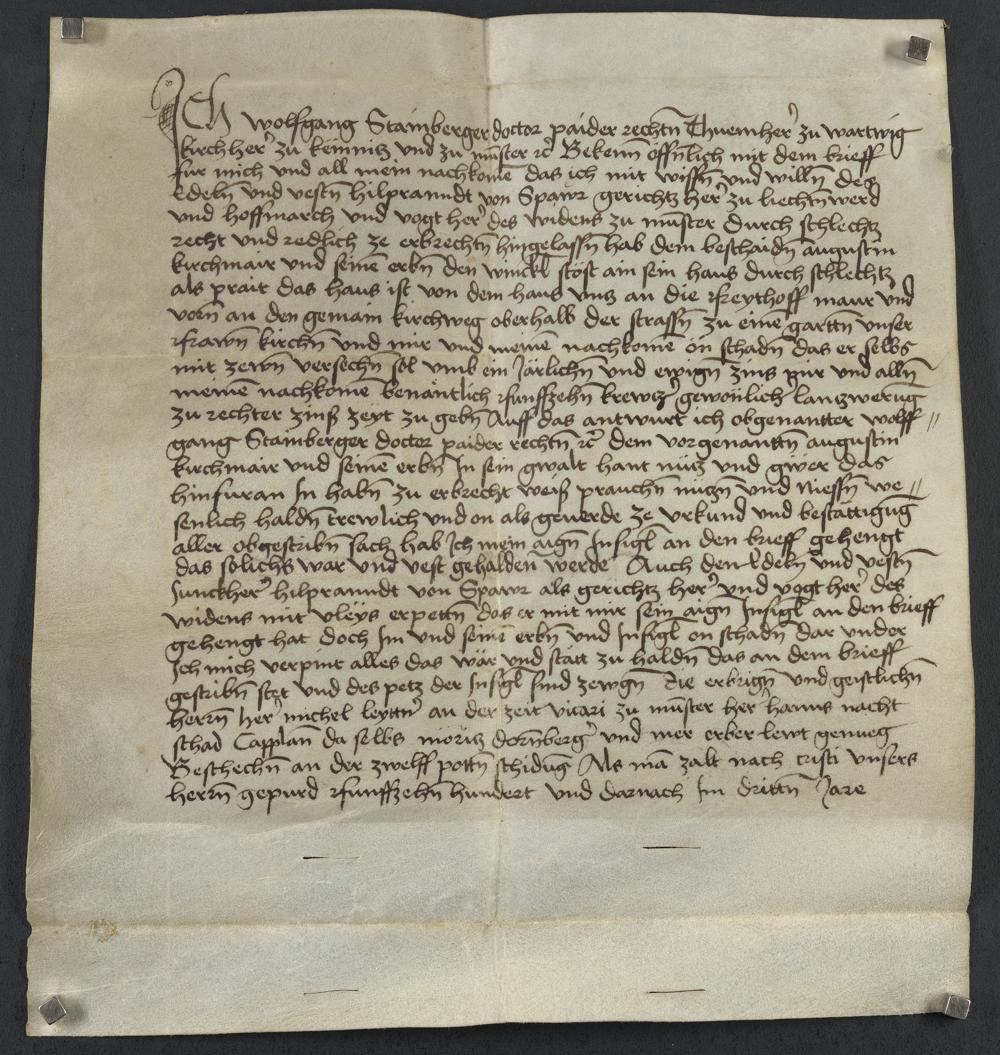 Ich wolfgang Stamberger doctor paider rechtn̄ Thuemher' zu wartwig
kirchher' zu kemnitz vnd zu mūster rc Bekenn öffnlich mit dem brieff
fur mich vnd all mein nachkomē das ich mit wissn̄ vnd willn̄ des
Edeln̄ vnd vestn̄ hilpranndt von Spawr gerichtz her' zu liechtn̄werd
vnd hoffmarch vnd vogt her' des widens zu mūster durch schlechtz
recht vnd redlich ze erbrechtn̄ hingelassn̄ hab dem beschaidn̄ augustin
kirchmair vnd seinē erbn̄ den winckl stöst ain sein haus durch schlechtz
als prait das haus ist von dem haus vntz an die freythoff maur vnd
vorn̄ an den gemain kirchweg oberhalb der strassn̄ zu einē garttn̄ vnser
frawn̄ kirchn̄ vnd mir vnd meinē nachkomē on schadn̄ das er selbs
mit zewn̄ versechn̄ sol vmb ein Järlichn̄ vnd ewign̄ zins mir vnd alln̄
meinē nachkomē benäntlich funffzehn̄ krewtz gewonlich lantzwerūg
zu rechter zinß zeyt zu gebn̄ Auff das antwurt ich obgenantter wolff
gang Stamberger doctor paider rechtn̄ rc dem vorgenanttn̄ augustin
kirchmair vnd seinē erbn̄ In sein gwalt hant nütz vnd gwer das
hinfuran In habn̄ zu erbrecht weiß prauchn̄ nützn̄ vnd niessn̄ we
senlich haldn̄ trewlich vnd on als geuerde ze vrkund vnd bestättigūg
aller obgeschribn̄ sach hab Ich mein aign̄ Insigl an den brieff gehengt
das sölichs war vnd vest gehalden werde Auch den Edeln̄ vnd vestn̄
Junckher' hilpranndt von Spawr als gerichtz her' vnd vogt her' des
widens mit vleys erpettn̄ das er mit mir sein aign Insigl an den brieff
gehengt hat doch Im vnd seinē erbn̄ vnd Insigl on schadn̄ dar vnder
Ich mich verpint alles das wär vnd stätt zu haldn̄ das an dem brieff
geschribn̄ stet vnd des petz der Insigl sind zewgn̄ die erbrign̄ vnd geistlichn̄
herrn̄ her' michel leyttn' an der zeit vicari zu mūster her' hanns nacht
schad Capplan̄ da selbs moritz dorn̄berg' vnd mer erber lewt genueg
Beschechn̄ an der zwelff pottn̄ schidūg Als mā zalt nach cristi vnsers
herrn̄ gepurd funffzehn̄ hundert vnd darnach Im drittn̄ Jare